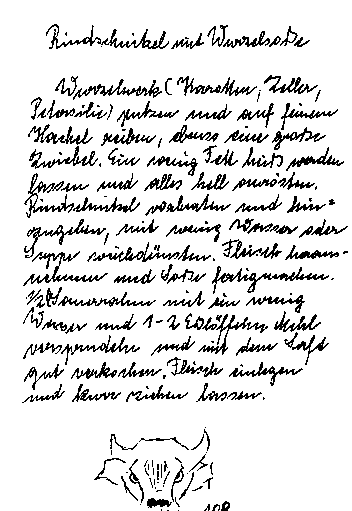 Rindschnitzel mit Wurzelsoße
Wurzelwerk (Karotten, Zeller,
Petersilie) putzen und auf feinem
Hachel reiben, ebenso eine große
Zwiebel. Ein wenig Fett heiß werden
lassen und alles hell anrösten.
Rindschnitzel vorbraten und hin=
zugeben, mit wenig Wasser oder
Suppe weichdünsten. Fleisch heraus-
nehmen und Soße fertigmachen.
1/2 Sauerrahm mit ein wenig
Wasser und 1-2 Eßlöffeln Mehl
versprudeln und mit dem Saft
gut verkochen. Fleisch einlegen
und kurz ziehen lassen.
108